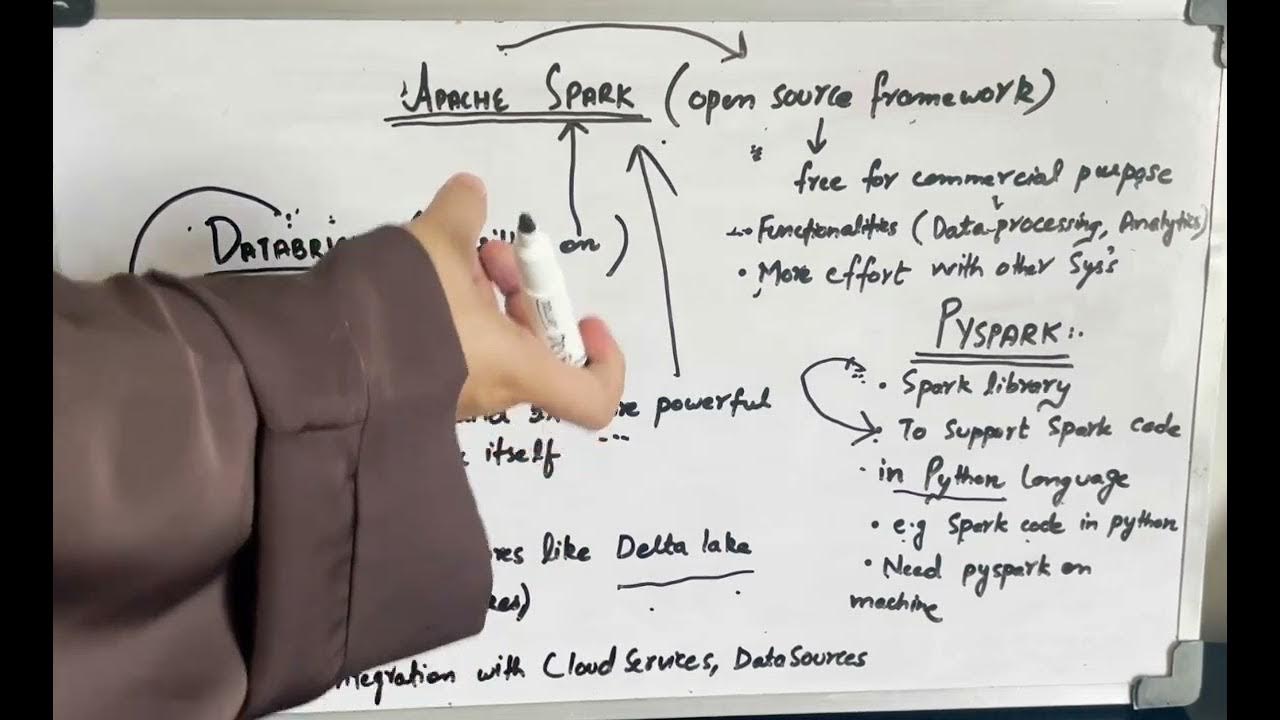 APACHE SPARK (open source framework)
free for commercial purpose
Functionalities (Data-processing, Analytics)
• More effort with other Sys's
DATABRI on)
PYSPARK:.
• Spark library
• To support Spark code
• in Python language
• e.g Spark code in python
• Need pyspark on
machine
powerful
itself
res like Delta lake
integration with Cloud Services, Data Sources